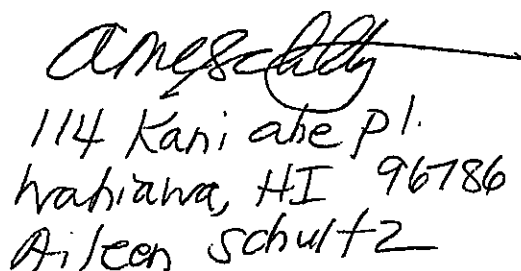 114 Kani ahe pl.
Wahiawa, HI 96786
Aileen Schultz